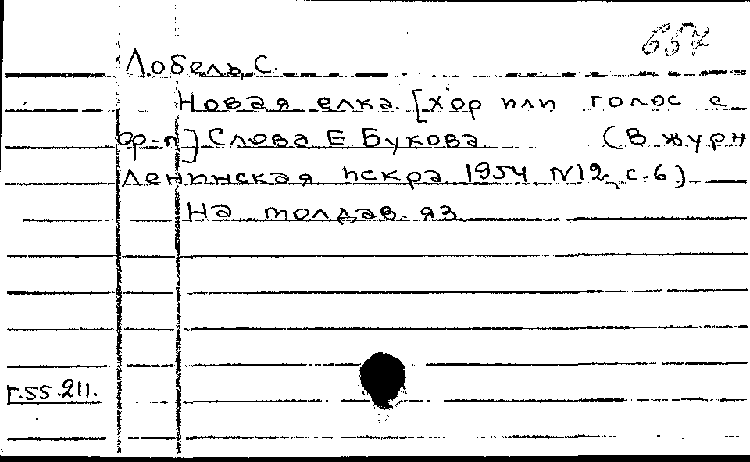 657
Лобель, С.
Новая елка. [хор или голос с
фр-п] Слова Е Букова (В журн
Ленинская искра 1954 N12, с. 6)
На молдав. яз
г.55.211.